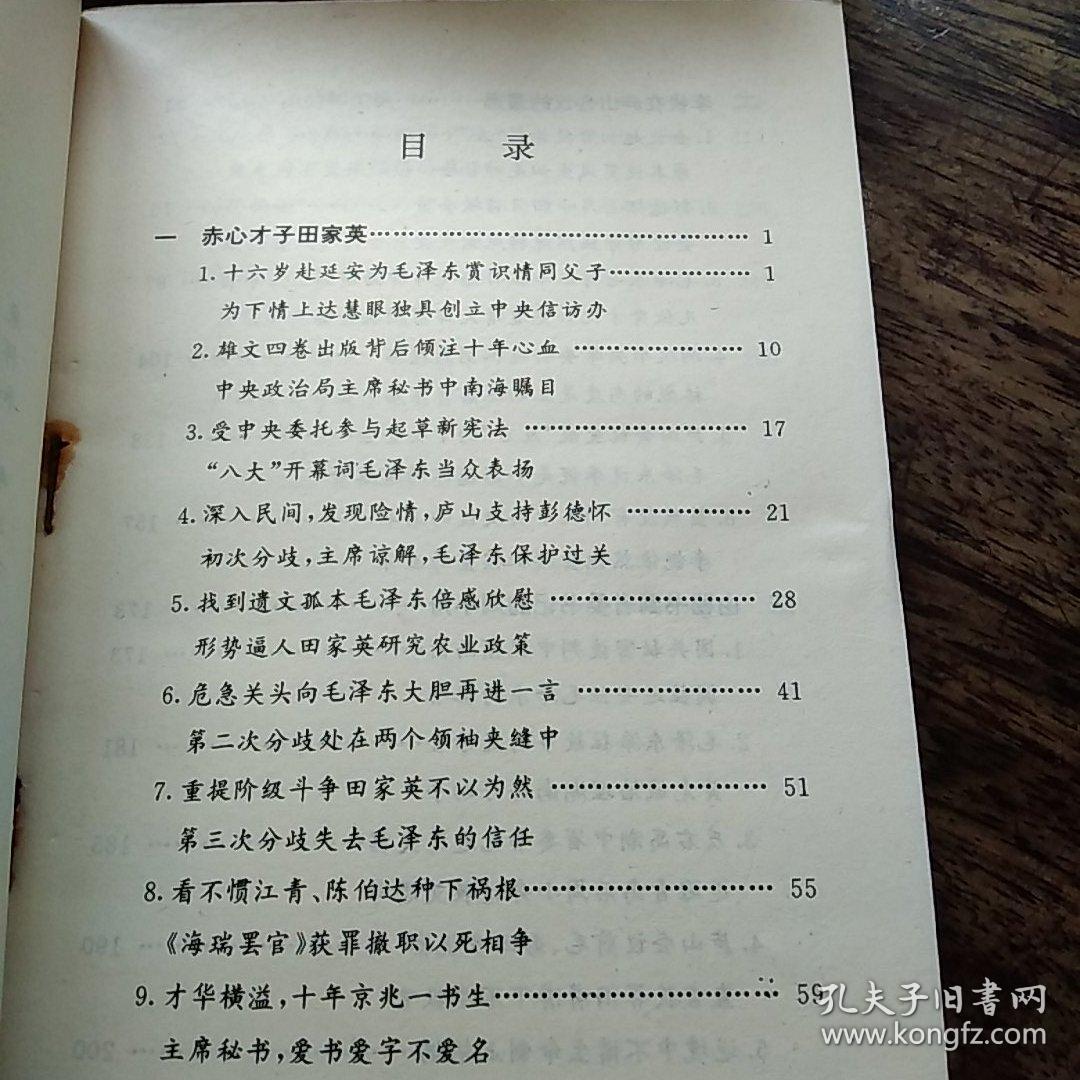 目 录
一 赤心才子田家英………………………………… 1
1.十六岁赴延安为毛泽东赏识情同父子……………… 1
为下情上达慧眼独具创立中央信访办
2.雄文四卷出版背后倾注十年心血 ………………… 10
中央政治局主席秘书中南海瞩目
3.受中央委托参与起草新宪法 ……………………… 17
“八大”开幕词毛泽东当众表扬
4.深入民间,发现险情,庐山支持彭德怀 …………… 21
初次分歧,主席谅解,毛泽东保护过关
5.找到遗文孤本毛泽东倍感欣慰 …………………… 28
形势逼人田家英研究农业政策
6.危急关头向毛泽东大胆再进一言 ………………… 41
第二次分歧处在两个领袖夹缝中
7.重提阶级斗争田家英不以为然 …………………… 51
第三次分歧失去毛泽东的信任
8.看不惯江青、陈伯达种下祸根……………………… 55
《海瑞罢官》获罪撤职以死相争
9.才华横溢,十年京兆一书生………………………… 59
主席秘书,爱书爱字不爱名
孔夫子旧书网
www.kongfz.com